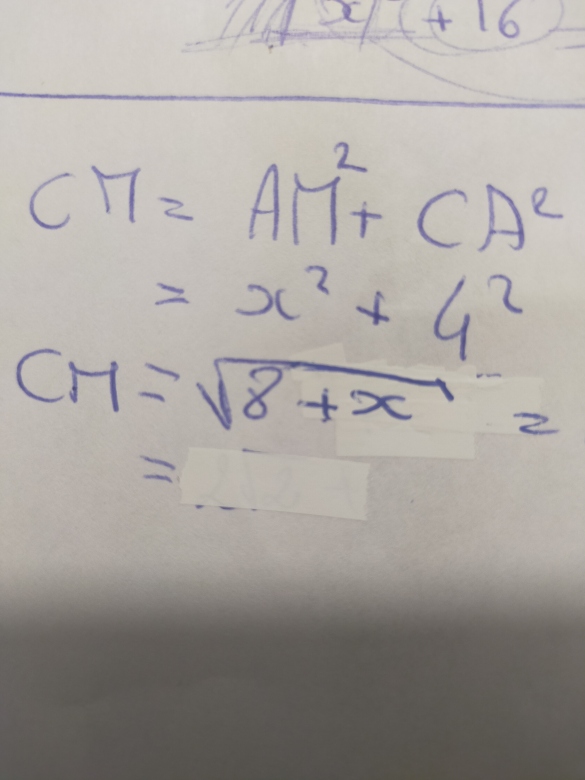 x + 16
CM = AM² + CA²
= x² + 4²
CM = √8 + x =
=